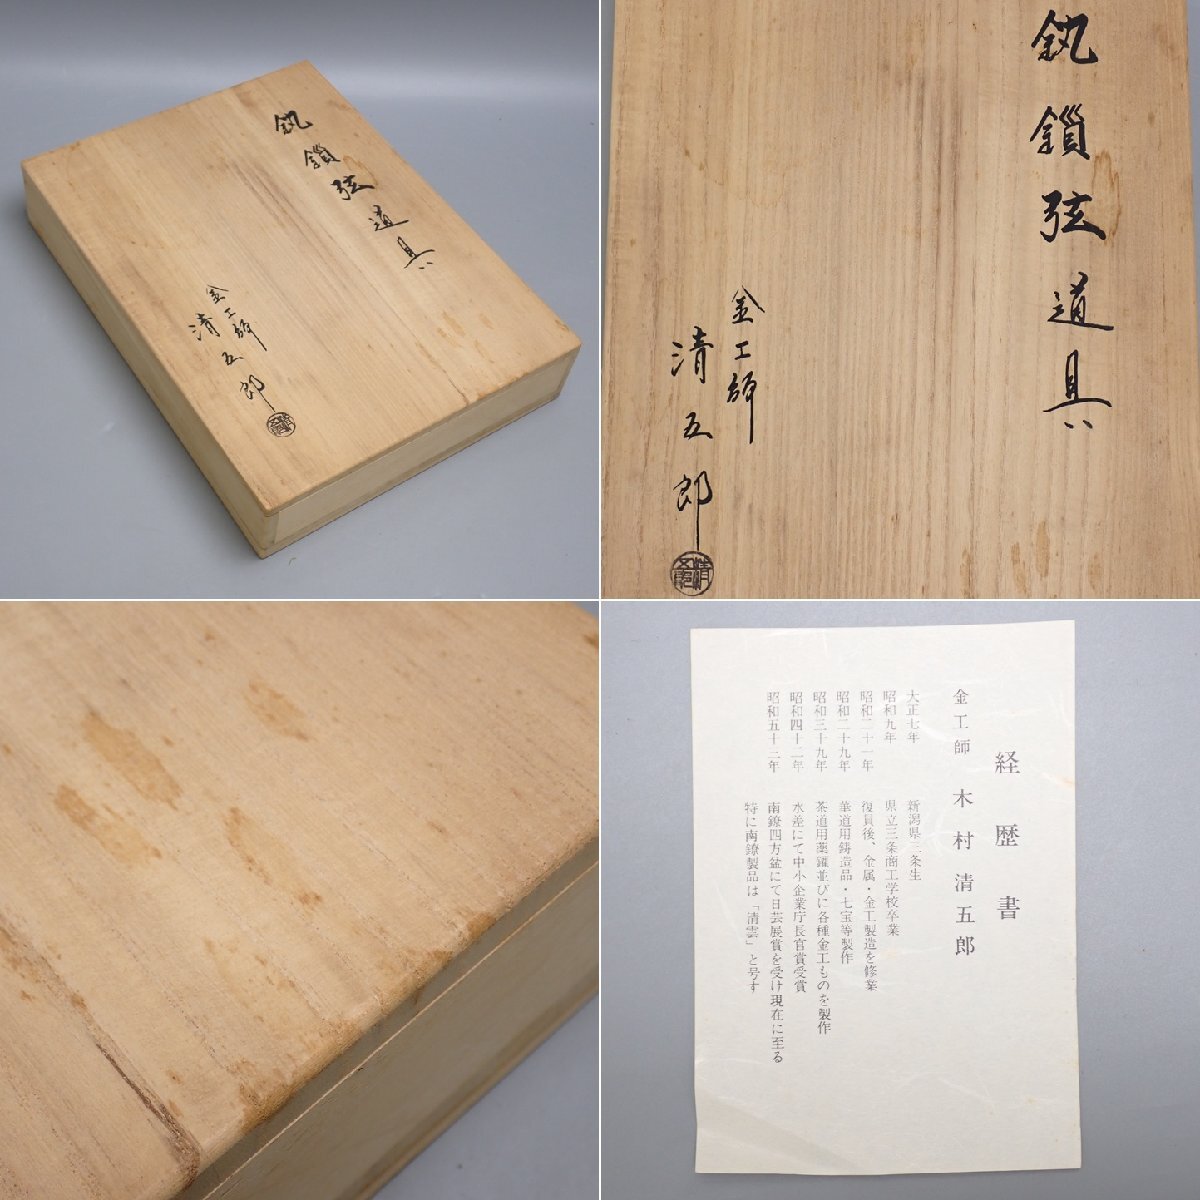 釻鎖弦道具
金工師
清五郎
釻鎖弦道具
金工師
清五郎
経歴書
金工師 木村清五郎
大正七年 新潟県三条生
昭和九年 県立三条商工学校卒業
昭和二十一年 復員後、金属・金工製造を修業
昭和二十九年 華道用鋳造品・七宝等製作
昭和三十九年 茶道用薬鑵並びに各種金工ものを製作
昭和四十二年 水差にて中小企業庁長官賞受賞
昭和五十三年 南鐐四方盆にて日芸展賞を受け現在に至る
特に南鐐製品は「清雲」と号す